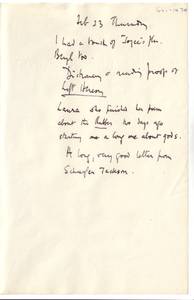 Feb 23 Thursday
I had a touch of Joyce's flu.
Beryl too.
Dictionary & reading proofs of
Left Heresy
Laura who finished her poem
about the two days ago
starting me a long one about gods.
A long, very good letter from
Schuyler Jackson.